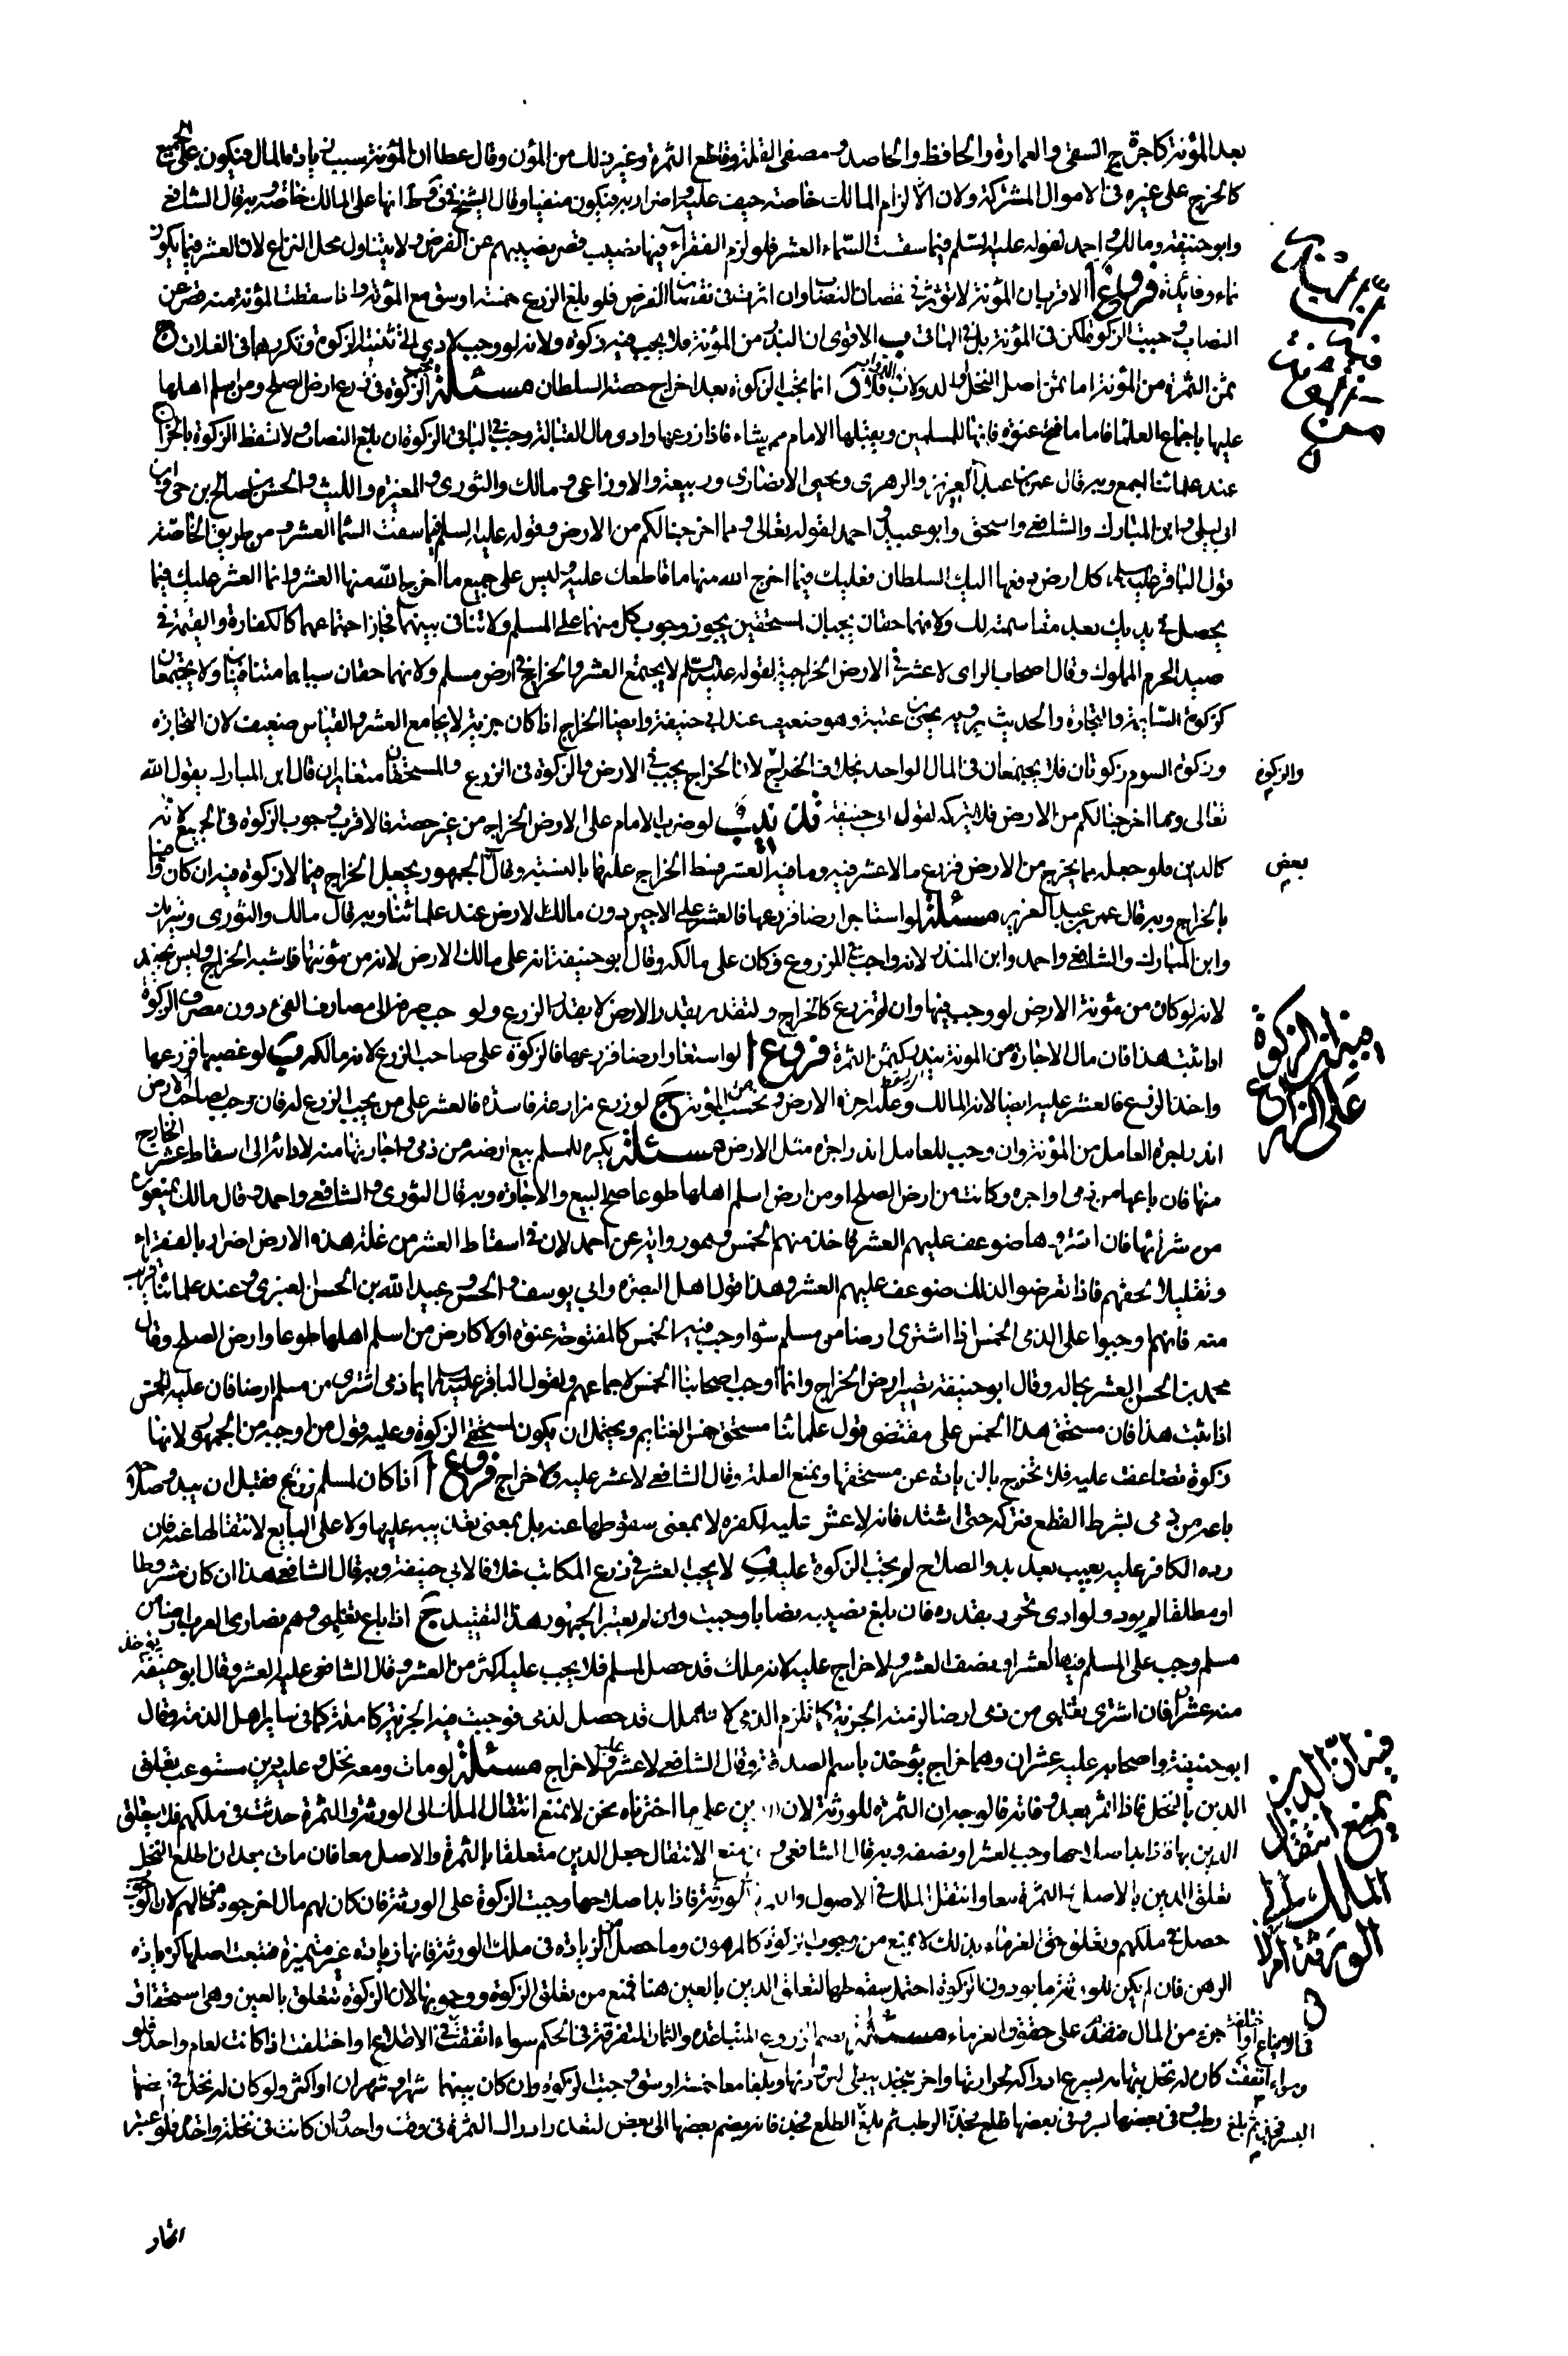 بعد المؤنة كاجرة السقى والعمارة والحافظ والحاصد ومصفى الغلة وقاطع الثمرة وغير ذلك من المؤن وقال عطا ان المؤنة سبب زيادة المال فيكون على الجميع
كالخرج على غيره فى الاموال المشتركة ولان الزام المالك خاصة حيف عليه واضرار به فيكون منفيا وقال الشيخ فى ط انها على المالك خاصة وبه قال الشافعى
وابو حنيفة ومالك واحمد لقوله عليه السلم فيما سقت السماء العشر فلو لزم الفقراء فيها نصيب قصر نصيبهم عن الفرض ولا يتناول محل النزاع لان العشر فيما يكون
نماء وفائدة فروع ا الاقرب ان المؤنة لا تؤثر فى نقصان النصاب وان اثرت فى نقصان الفرض فلو بلغ الزرع خمسة اوسق مع المؤنة واذا سقطت المؤنة منه قصر عن
النصاب وجبت الزكوة لكن فى المؤنة بل فى الباقى ب الاقوى ان البذر من المؤنة فلا يجب فيه زكوة ولانه لو وجب لادى الى تثنية الزكوة وتكررها فى الغلات ج
ثمن الثمرة من المؤنة اما ثمن اصل النخل او الدولاب فلا د انما تجب الزكوة بعد اخراج حصة السلطان مسئلة تجب الزكوة فى زرع ارض الصلح ومن اسلم اهلها
عليها باجماع العلماء فاما ما فتح عنوة فانها للمسلمين ويقبلها الامام ممن يشاء فاذا زرعها وادى مال القبالة وجب فى الباقى الزكوة ان بلغ النصاب ولا تسقط الزكوة بالخراج
عند علمائنا اجمع وبه قال عمر بن عبد العزيز والزهرى ويحيى الانصارى وربيعة والاوزاعى ومالك والثورى والمغيرة والليث والحسن بن صالح بن حى وابن
ابى ليلى وابن المبارك والشافعى واسحق وابو عبيد واحمد لقوله تعالى ومما اخرجنا لكم من الارض وقوله عليه السلم فيما سقت السماء العشر ومن طريق الخاصة
قول الباقر عليه السلم كل ارض دفعها اليك السلطان فعليك فيما اخرج الله منها ما قاطعك عليه وليس على جميع ما اخرج الله منها العشر وانما العشر عليك فيما
يحصل فى يديك بعد مقاسمته لك ولانهما حقان يجبان لمستحقين يجوز وجوب كل منهما على المسلم ولا تنافى بينهما فجاز اجتماعهما كالكفارة والقيمة فى
صيد الحرم المملوك وقال اصحاب الراى لا عشر فى الارض الخراجية لقوله عليه السلم لا يجتمع العشر والخراج فى ارض مسلم ولانهما حقان سبباهما متنافيان ولا يجتمعان
كزكوة السائمة والتجارة والحديث يرويه يحيى بن عتبة وهو ضعيف عند ابى حنيفة وايضا الخراج اذا كان جزية لا يجامع العشر والقياس ضعيف لان التجارة
وزكوة السوم زكوتان فلا يجتمعان فى المال الواحد بخلاف الخراج لان الخراج يجب فى الارض والزكوة فى الزرع والمستحقان متغايران قال ابن المبارك يقول الله
والزكوة
تعالى ومما اخرجنا لكم من الارض فلا نتركه لقول ابى حنيفة تذنيب لو ضرب الامام على الارض الخراج من غير حصة فالاقرب وجوب الزكوة فى الجميع لانه
كالدين فلو جعله مما يخرج من الارض فزرع ما لا عشر فيه وما فيه العشر قسط الخراج عليهما بالنسبة وقال بعض الجمهور يجعل الخراج فيما لا زكوة فيه ان كان وافيا
بعض
بالخراج وبه قال عمر بن عبد العزيز مسئلة لو استاجر ارضا فزرعها فالعشر على الاجير دون مالك الارض عند علمائنا وبه قال مالك والثورى وشريك
وابن المبارك والشافعى واحمد وابن المنذر لانه واجب فى الزرع فكان على مالكه وقال ابو حنيفة انه على مالك الارض لانه من مؤنتها فاشبه الخراج وليس بجيد
لانه لو كان من مؤنة الارض لوجب فيها وان لم تزرع كالخراج ولتقدر بقدر الارض لا بقدر الزرع ولوجب صرفه الى مصارف الفئ دون مصرف الزكوة
اذا ثبت هذا فان مال الاجارة من المؤنة يندر كثمن الثمرة فروع ا لو استعار ارضا فزرعها فالزكوة على صاحب الزرع لانه مالكه ب لو غصبها فزرعها
واخذ الزرع فالعشر عليه ايضا لانه المالك وعليه اجرة الارض وتحسب من المؤنة ج لو زرع مزارعة فاسدة فالعشر على من يجب الزرع له فان وجب لصاحب الارض
اندر اجرة العامل من المؤنة وان وجب للعامل اندر اجرة مثل الارض مسئلة يكره للمسلم بيع ارضه من ذمى واجارتها منه لادائه الى اسقاط عشر الخارج
منها فان باعها من ذمى او اجره وكانت من ارض الصلح او من ارض اسلم اهلها طوعا صح البيع والاجارة وبه قال الثورى والشافعى واحمد وقال مالك يمنعون
من شرائها فان اشتروها ضوعف عليهم العشر فاخذ منهم الخمس وهو رواية عن احمد لان فى اسقاط العشر من غلة هذه الارض اضرار بالفقراء
وتقليلا لحقهم فاذا تعرضوا لذلك ضوعف عليهم العشر وهذا قول اهل البصرة وابى يوسف والحسن وعبيد الله بن الحسن العنبرى وعند علمائنا قريب
منه فانهم اوجبوا على الذمى الخمس اذا اشترى ارضا من مسلم سواء وجب فيه الخمس كالمفتوحة عنوة او لا كارض من اسلم اهلها طوعا وارض الصلح وقال
محمد بن الحسن العشر بحاله وقال ابو حنيفة تصير ارض الخراج وانما اوجب اصحابنا الخمس لاجماعهم ولقول الباقر عليه السلم ايما ذمى اشترى من مسلم ارضا فان عليه الخمس
اذا ثبت هذا فان مستحق هذا الخمس على مقتضى قول علمائنا مستحق خمس الغنايم ويحتمل ان يكون لمستحقى الزكوة وعليه قول من اوجبه من الجمهور لانها
زكوة تضاعفت عليه فلا تخرج بالزيادة عن مستحقها وتمنع العلة وقال الشافعى لا عشر عليه ولا خراج فروع ا اذا كان لمسلم زرع فقبل ان يبدو صلاحه
باعه من ذمى بشرط القطع فتركه حتى اشتد فانه لا عشر عليه لكفره لا بمعنى سقوطها عنه بل بمعنى تعذيبه عليها ولا على البايع لانتقالها عنه فان
رده الكافر عليه بعيب بعد بدو الصلاح لم تجب الزكوة عليه ب لا يجب العشر فى زرع المكاتب خلافا لابى حنيفة وبه قال الشافعى هذا ان كان مشروطا
او مطلقا لم يؤد ولو ادى تحرر بقدره فان بلغ نصيبه نصابا وجبت وان لم يعتبر الجمهور هذا التقييد ج اذا باع تغلبى وهم نصارى العرب ارضا من
مسلم وجب على المسلم فيها العشر او نصف العشر ولا خراج عليه لانه ملك قد حصل لمسلم فلا يجب عليه اكثر من العشر وقال الشافعى عليه العشر وقال ابو حنيفة يؤخذ
منه عشران فان اشترى تغلبى من ذمى ارضا لزمته الجزية كما تلزم الذمى لانه ملك قد حصل لذمى فوجبت فيه الجزية كاملة كما فى ساير اهل الذمة وقال
ابو حنيفة واصحابه عليه عشران وهما خراج يؤخذ باسم الصدقة وقال الشافعى لا عشر عليه ولا خراج مسئلة لو مات ومعه نخل وعليه دين مستوعب تعلق
الدين بالنخل فاذا اثمر بعد وفاته فالوجه ان الثمرة للورثة لان الدين على ما اخترناه نحن لا يمنع انتقال الملك الى الورثة والثمرة حدثت فى ملكهم فلا يتعلق
الدين بها فاذا بدا صلاحها وجب العشر او نصفه وبه قال الشافعى ومن منع الانتقال جعل الدين متعلقا بالثمرة والاصل معا فان مات بعد ان اطلع النخل
تعلق الدين بالاصل والثمرة معا وانتقل الملك فى الاصول والثمرة الى الورثة فاذا بدا صلاحها وجبت الزكوة على الورثة فان كان لهم مال اخرجوه من مالهم لان الوجوب
حصل فى ملكهم وتعلق حق الغرماء بذلك لا يمنع من وجوب الزكوة كالمرهون وما حصل من الزيادة فى ملك الورثة فانها زيادة غير متميزة فتبعت اصلها كزيادة
الرهن فان لم يكن للورثة ما يؤدون الزكوة احتمل سقوطها لتعلق الدين بالعين هنا فمنع من تعلق الزكوة ووجوبها لان الزكوة تتعلق بالعين وهى استحقاق
جزء من المال فتقدم على حقوق الغرماء مسئلة يضم الزروع المتباعدة والثمار المتفرقة فى الحكم سواء اتفقت فى الاطلاع او اختلفت اذا كانت لعام واحد فلو
كان له نخل بتهامة يسرع ادراكه لحرارتها واخر بنجد يبطى لبرودتها وبلغا معا خمسة اوسق وجبت الزكوة وان كان بينهما شهر او شهران او اكثر ولو كان له نخل فى بعضها
رطب وفى بعضها بسر وفى بعضها طلع فجذ الرطب ثم بلغ الطلع فجذ فانه يضم بعضها الى بعض لتعذر ادراك الثمرة فى وقت واحد وان كانت فى نخلة واحدة فلو اعتبر
اتحاد